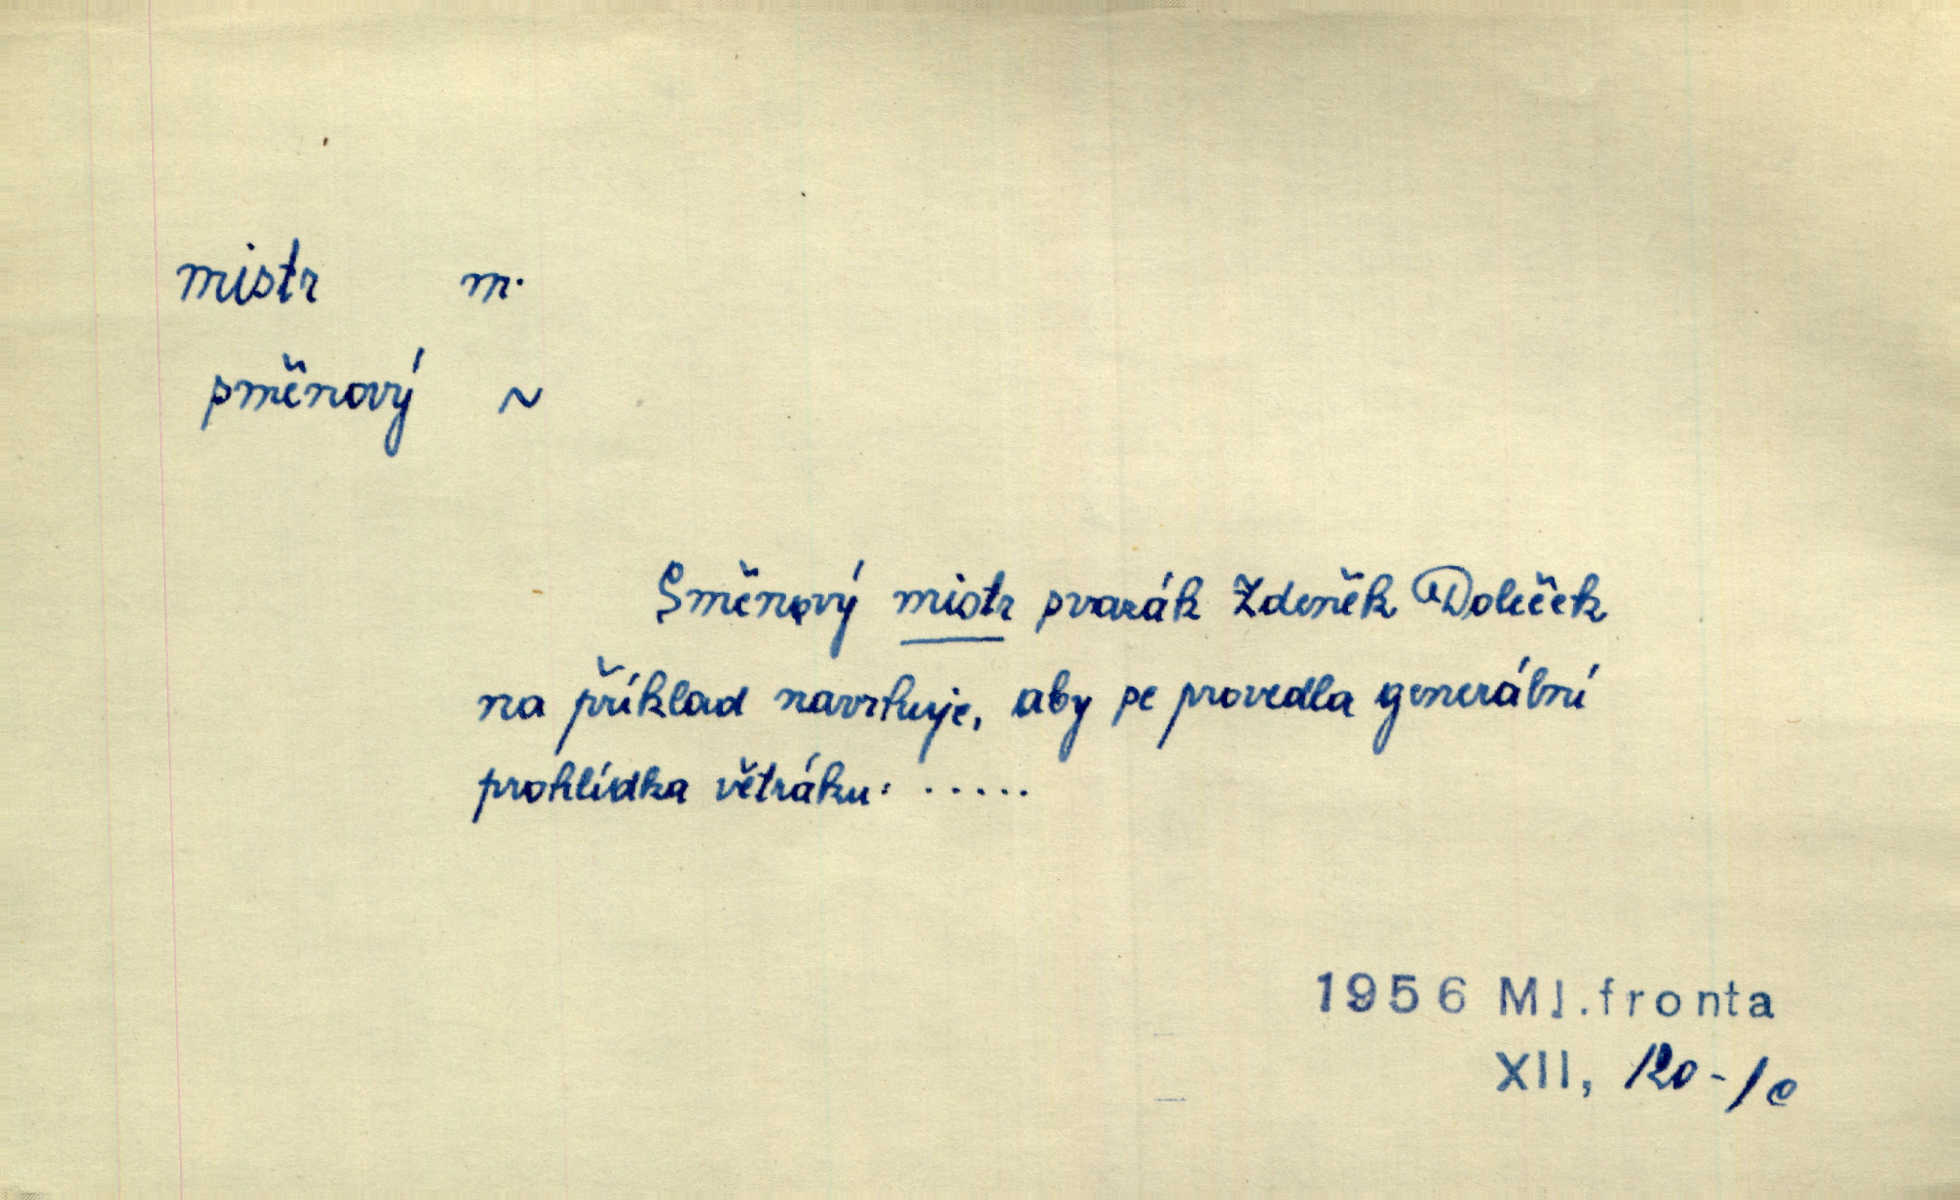 mistr m.
směnový ~
Směnový mistr svazák Zdeněk Doleček
na příklad navrhuje, aby se provedla generální
prohlídka větráku: .....
1956 Ml.fronta
XII, 120-1c